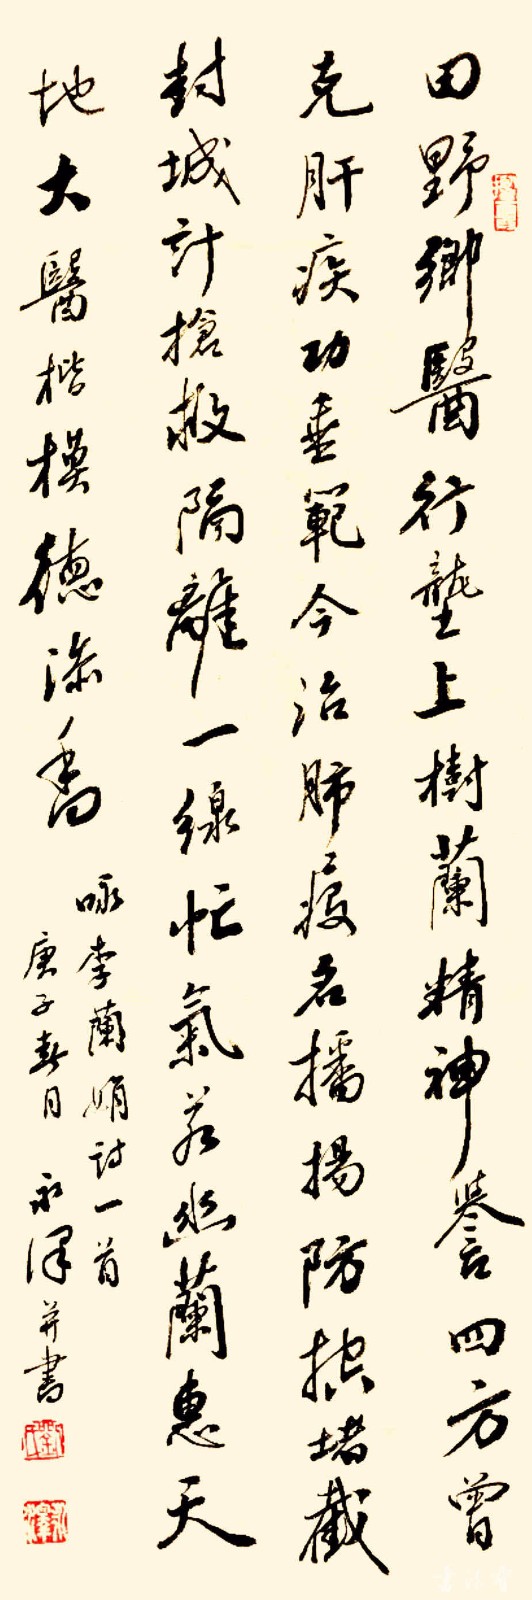 田野鄉醫行壟上樹蘭精神譽四方曾
克肝疾功垂範今治肺疫名播揚防控堵截
封城計搶救隔離一線忙氣若幽蘭惠天
地大醫楷模德添香
咏李蘭娟詩一首
庚子春日 永澤并書